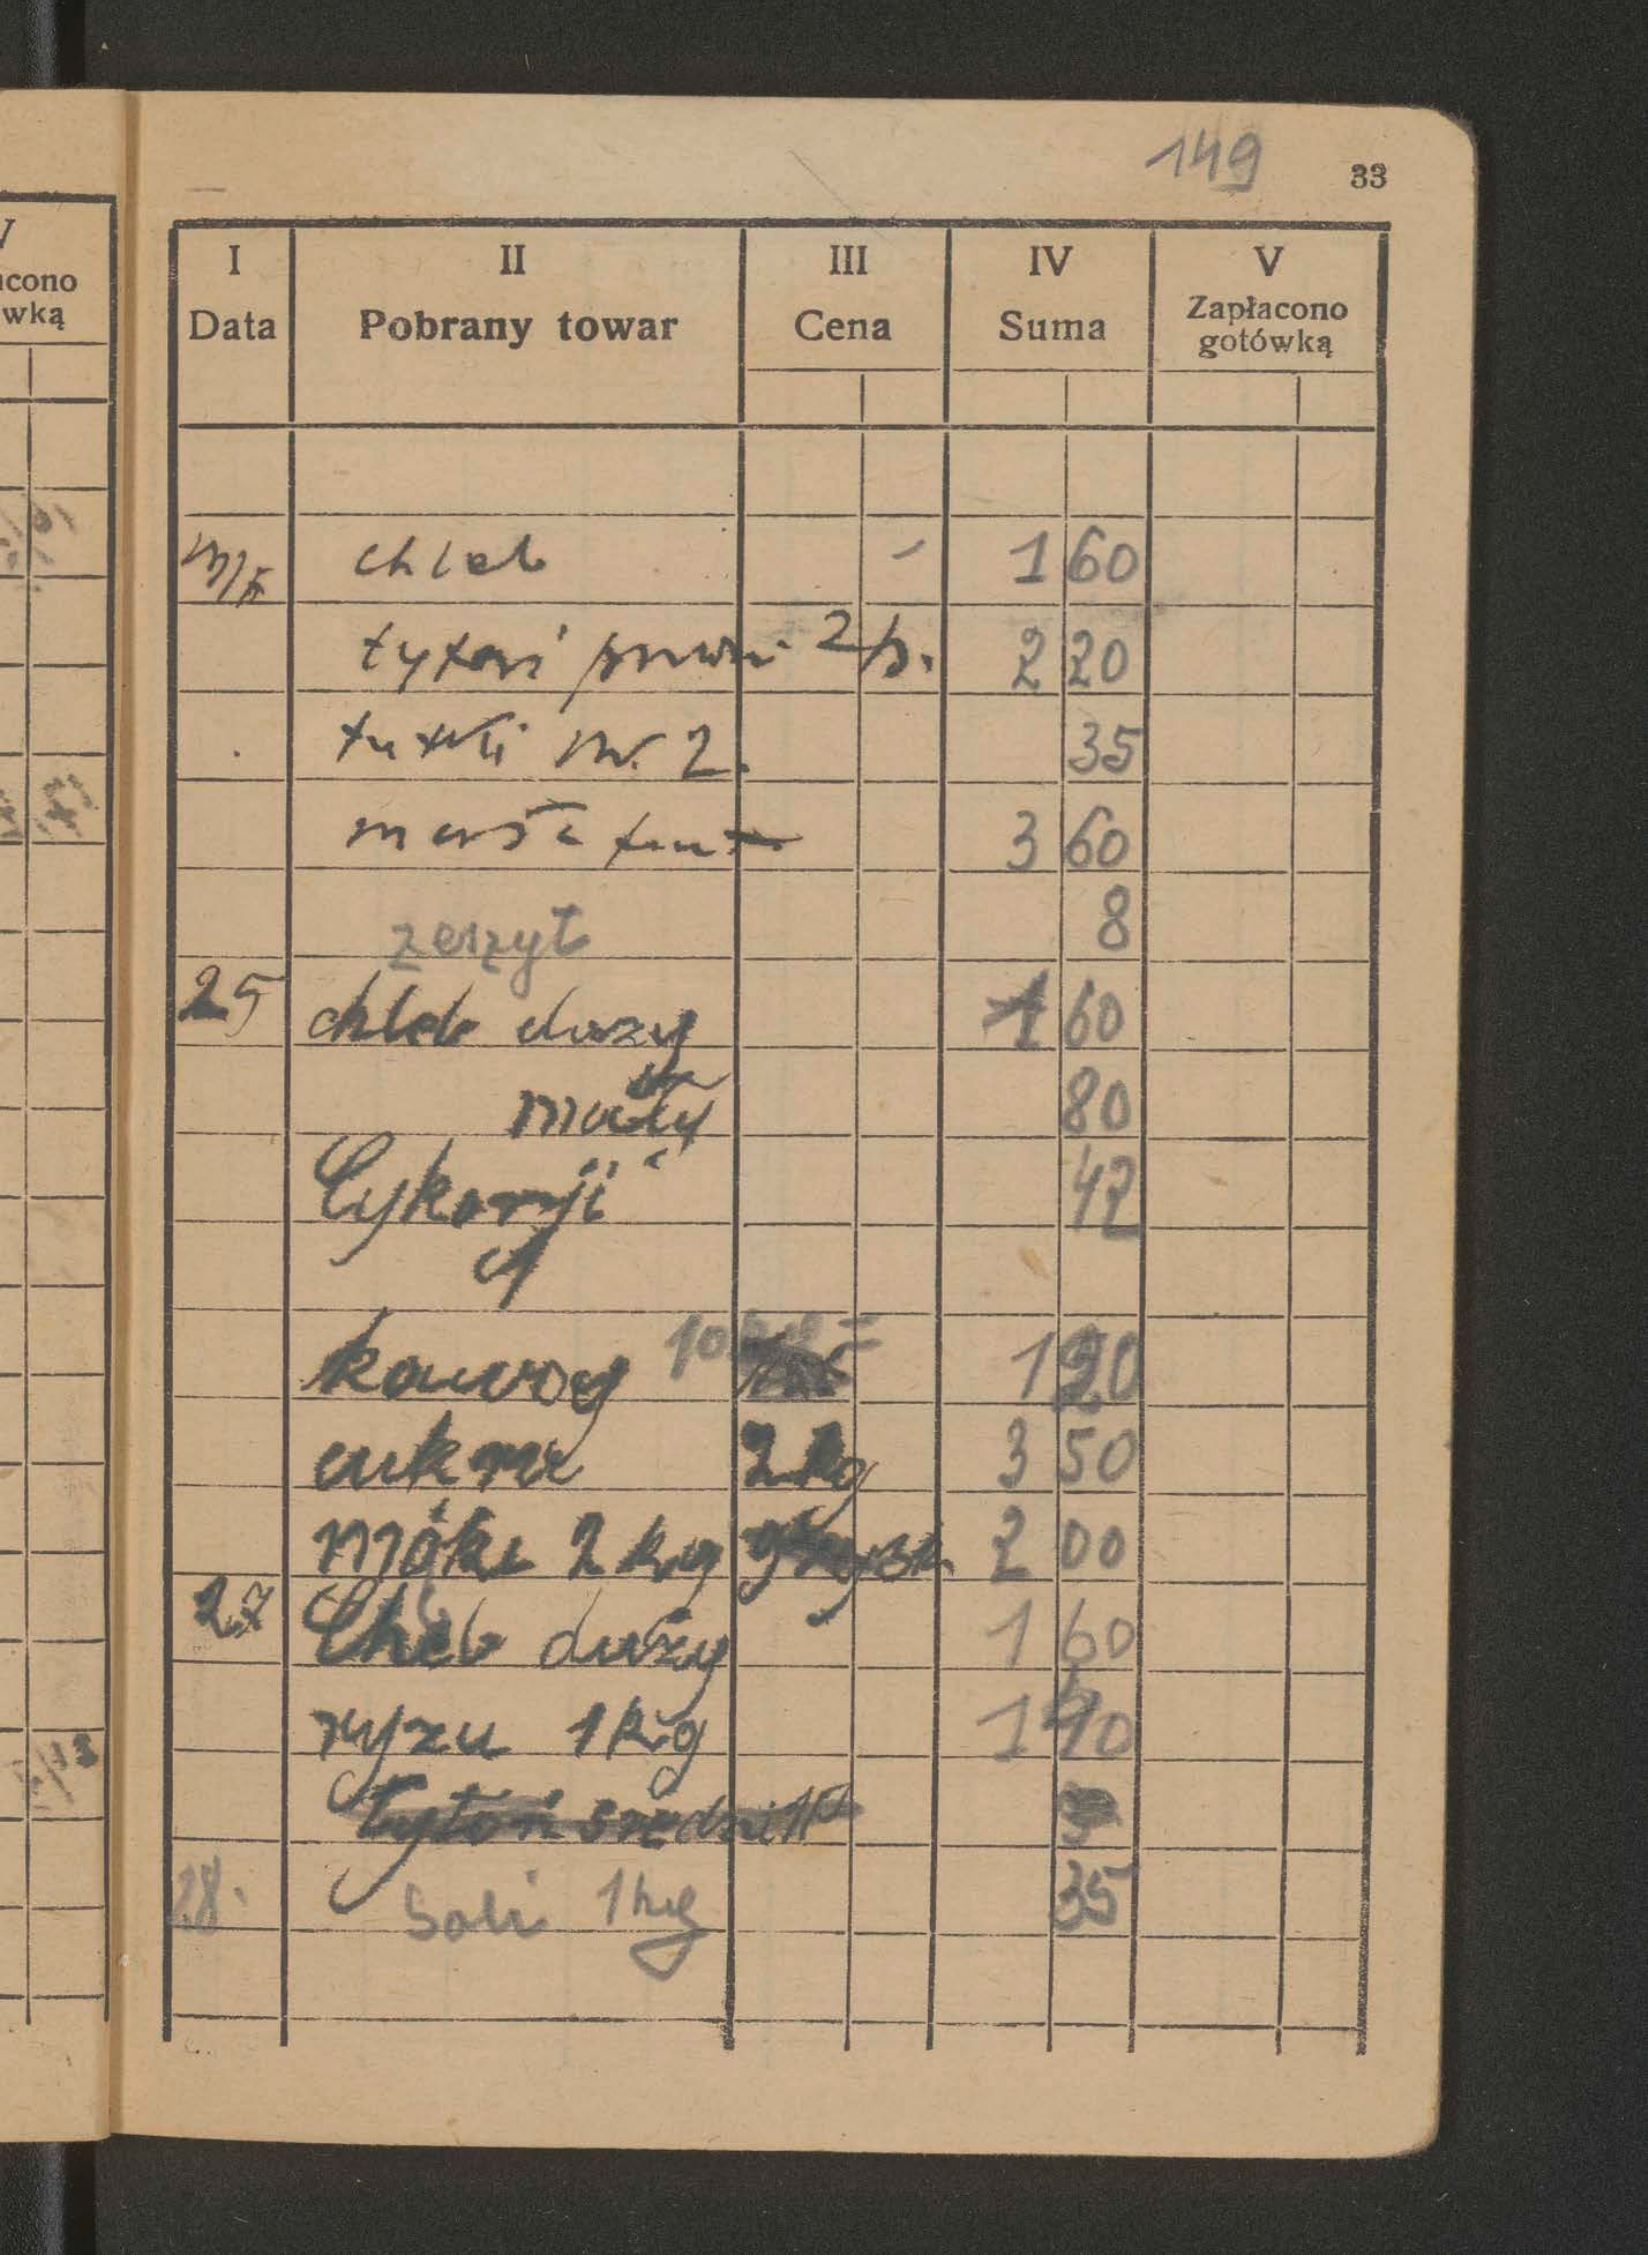 V
acono
wką
149 33
I II III IV V
Data Pobrany towar Cena Suma Zapłacono
gotówką
chleb - 1 60
tytoń 2 p. 2 20
tutki nr. 2. 35
masła funt 3 60
zeszyt 8
25 chleb duży 1 60
mały 80
Cykorji 42
1
kawy 10 1 20
cukru 2 kg 3 50
mąki 2 kg 2 00
27 Chleb duży 1 60
ryzu 1 kg 1 40
tytoń średni
28. Soli 1 kg 35